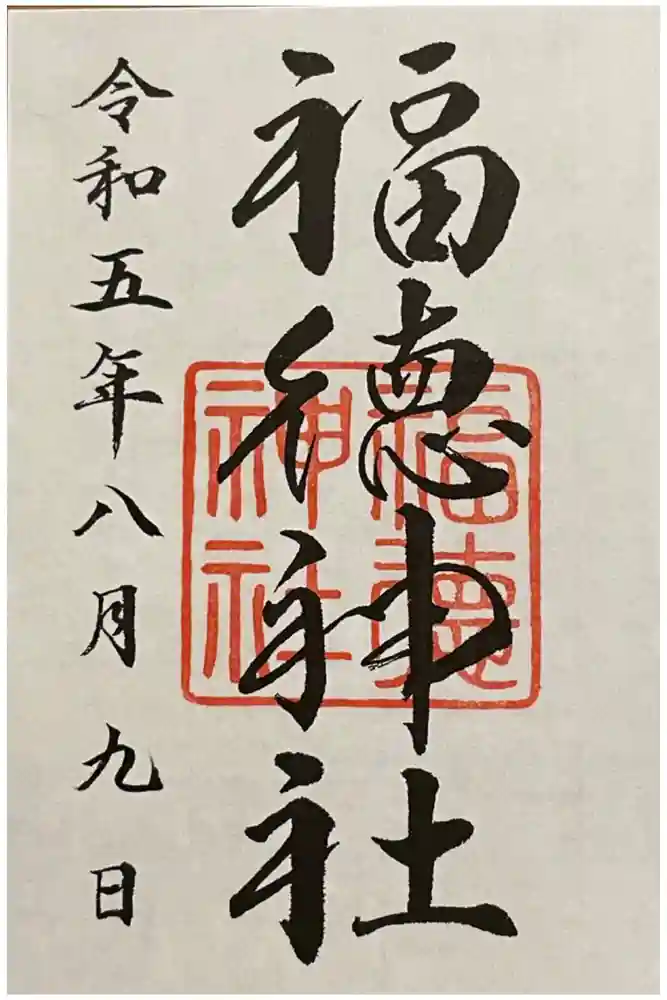 福徳神社
令和五年八月九日
福徳
神社